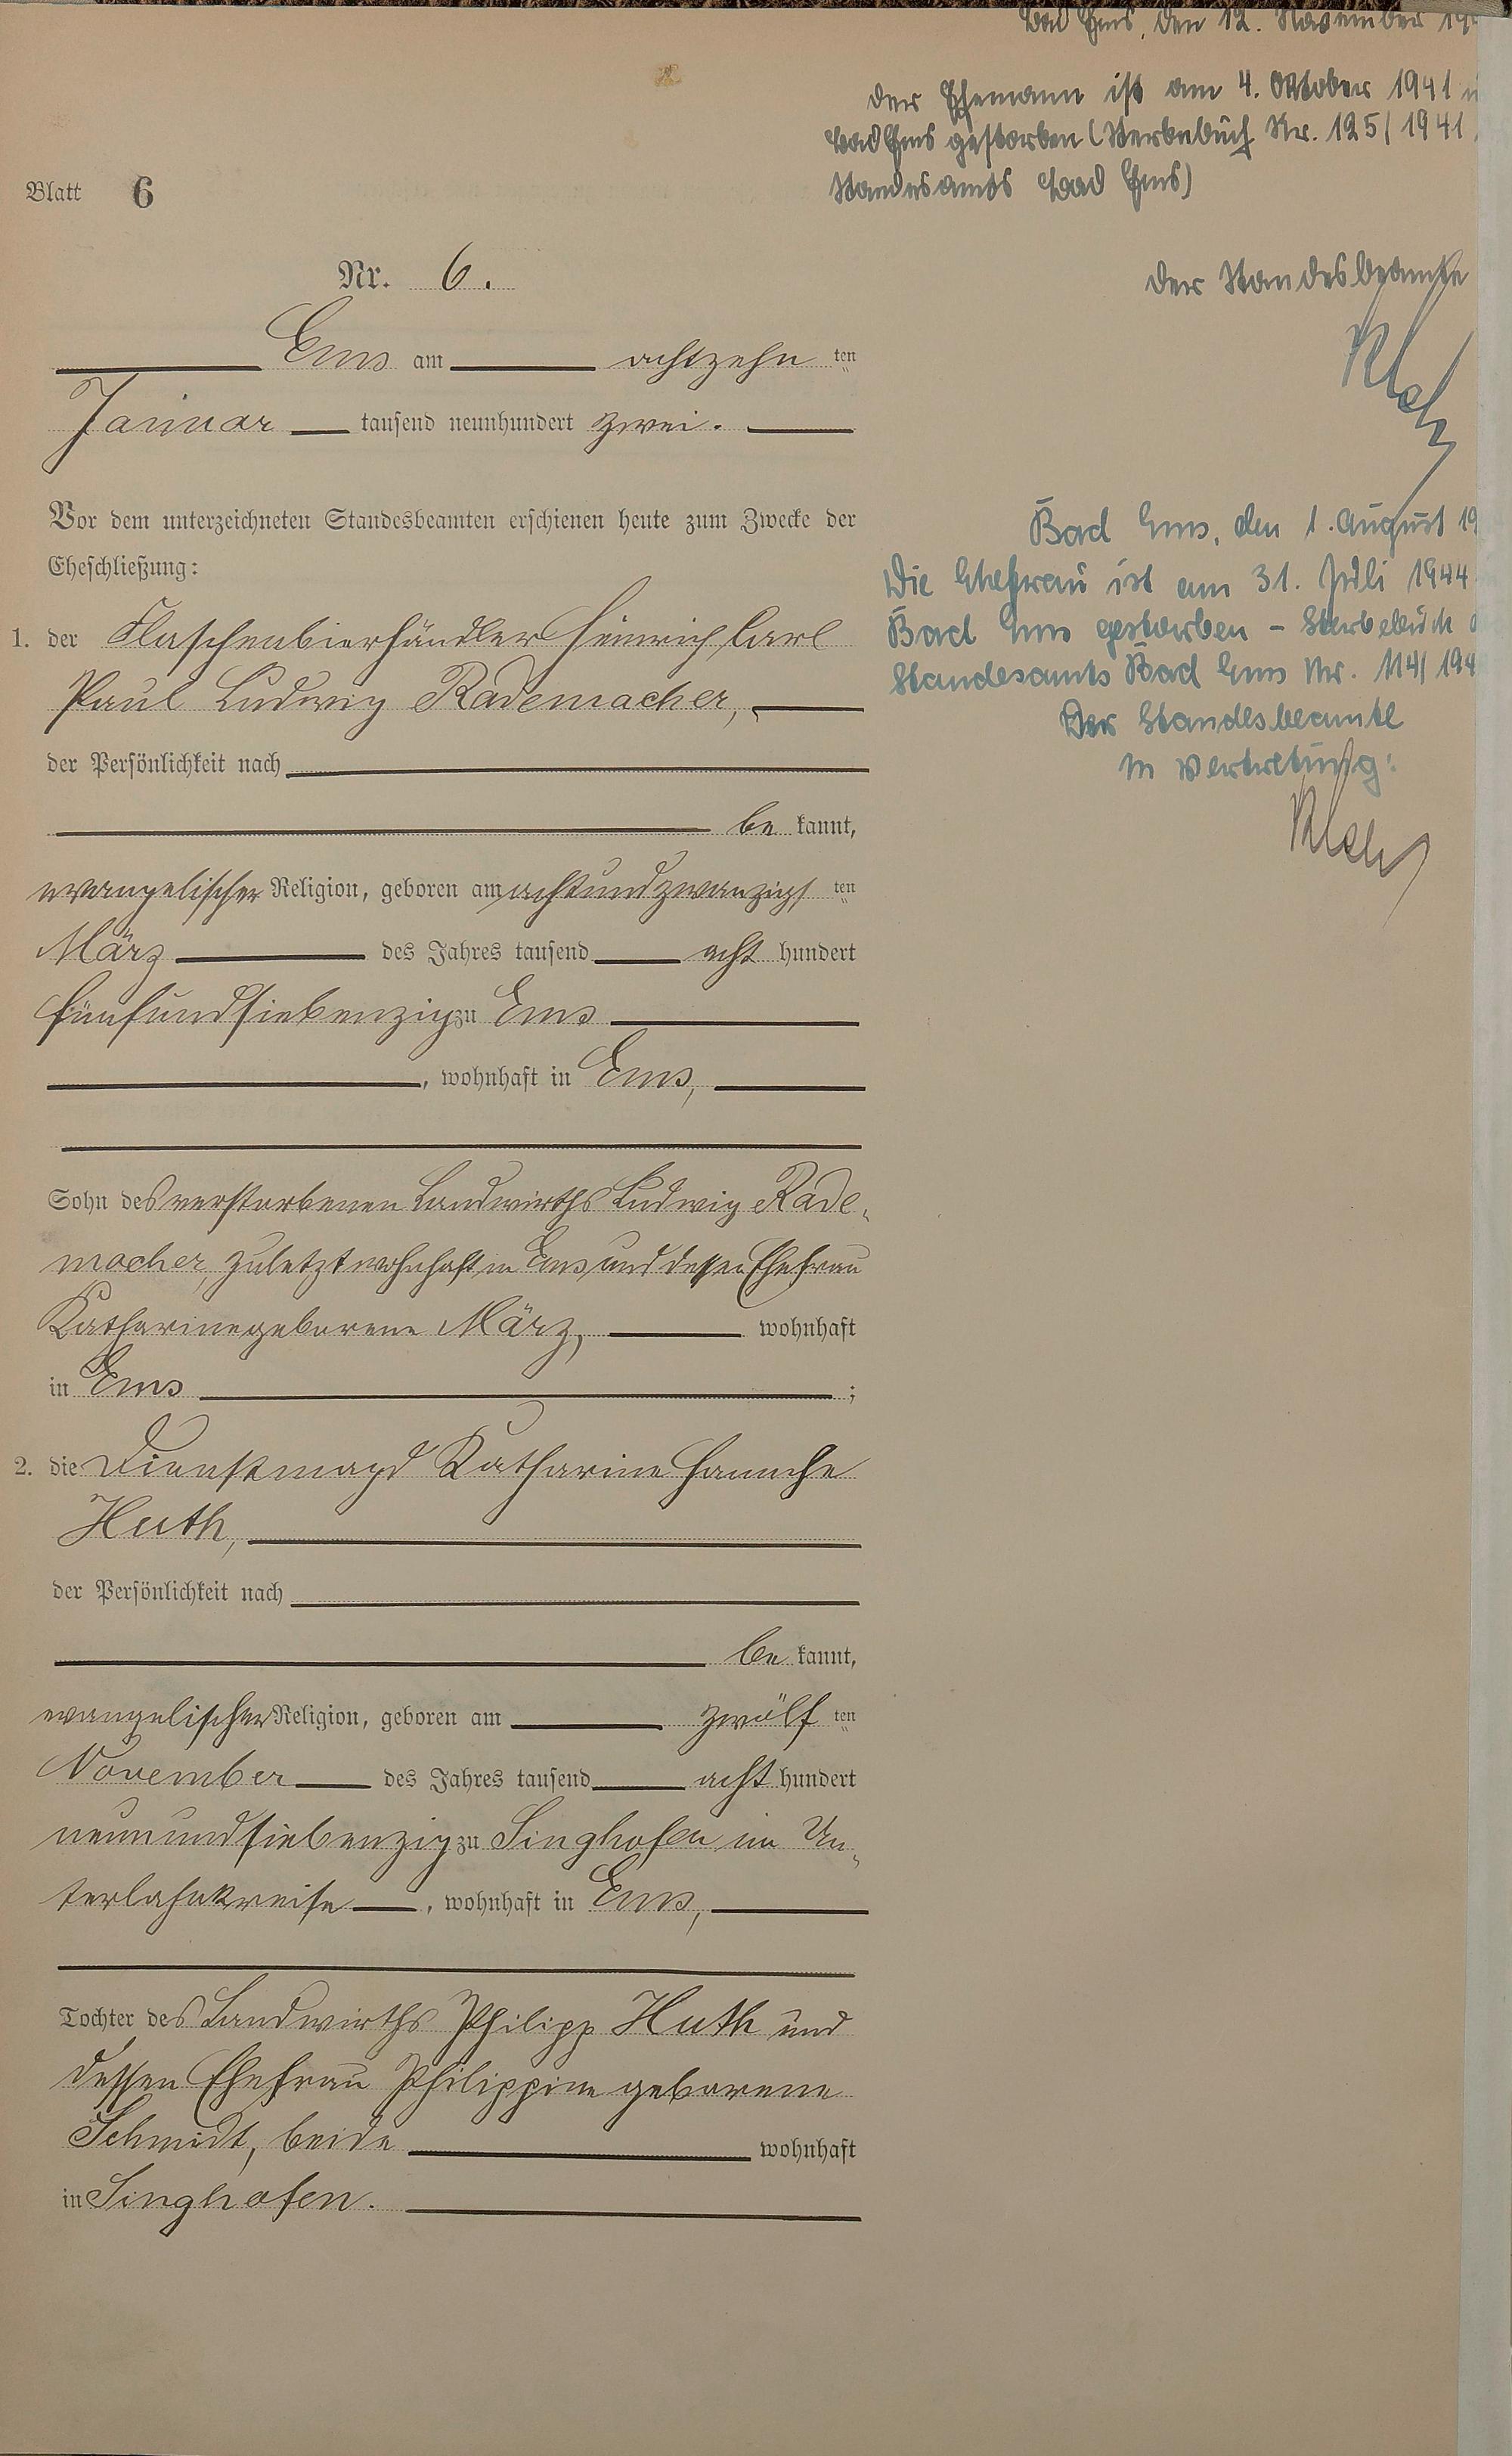 Bad Ems, den 12. November 19
Der Ehemann ist am 4. Oktober 1941
Bad Ems gestorben (Sterbebuch Nr. 125/1941
Standesamts Bad Ems)
Der Standesbeamte
Blatt 6
Nr. 6.
Ems am achtzehn ten
Januar tausend neunhundert zwei.
Vor dem unterzeichneten Standesbeamten erschienen heute zum Zwecke der
Eheschließung:
1. der Flaschenbierhändler Heinrich Carl
Paul Ludwig Rademacher,
der Persönlichkeit nach
be kannt,
evangelischer Religion, geboren am achtundzwanzigs ten
März des Jahres tausend acht hundert
fünfundsiebenzig zu Ems
, wohnhaft in Ems,
Sohn des verstorbenen Landwirths Ludwig Rade-
macher, zuletzt wohnhaft in Ems und dessen Ehefrau
Katharine geborene März, wohnhaft
in Ems ;
2. die Dienstmagd Katharine
Huth,
der Persönlichkeit nach
be kannt,
evangelischer Religion, geboren am zwölf ten
November des Jahres tausend acht hundert
neunundsiebenzig zu Singhofen im Un-
terlahnkreise , wohnhaft in Ems,
Tochter des Landwirths Philipp Huth und
dessen Ehefrau Philippine geborene
Schmidt, beide wohnhaft
in Singhofen.
Bad Ems, den 1. August 19
Die Ehefrau ist am 31. Juli 1944
Bad Ems gestorben – Sterbebuch
Standesamts Bad Ems Nr. 114/194
Der Standesbeamte
In Vertretung: